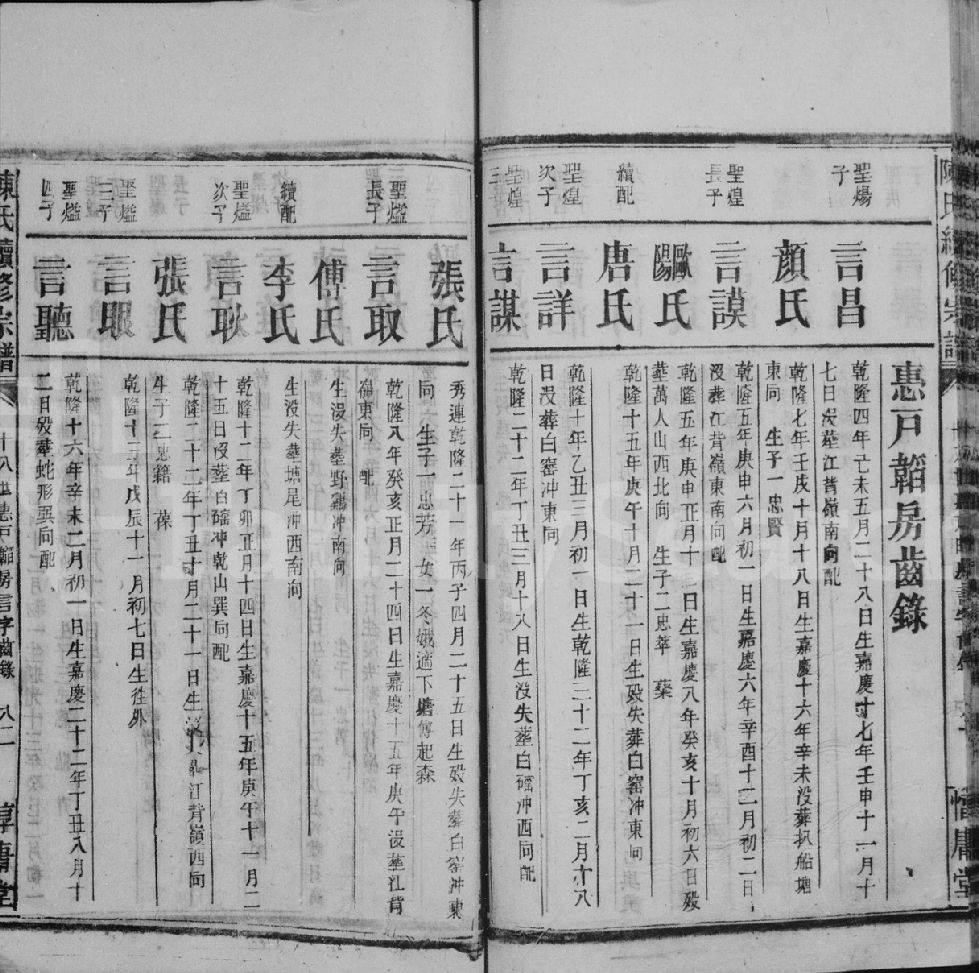 惠戶韜房齒錄
聖煬
子
言昌
乾隆四年己未五月二十八日生嘉慶十七年壬申十一月十
七日沒葬江背嶺東南向配
顏氏
乾隆七年壬戌十月十八日生嘉慶十六年辛未沒葬扒船塘
東向 生子一忠賢
聖煌
長子
言謨
乾隆五年庚申六月初一日生嘉慶六年辛酉十二月初二日
沒葬江背嶺東南向配
歐陽氏
乾隆五年庚申正月十二日生嘉慶八年癸亥十月初六日歿
葬萬人山西北向 生子二忠萃 藥
續配
唐氏
乾隆十五年庚午十月二十一日生歿失葬白窑冲東向
聖煌
次子
言詳
乾隆十年乙丑三月初一日生乾隆三十二年丁亥二月十八
日沒葬白窑冲東向
聖煌
三
言謀
乾隆二十二年丁丑三月十八日生沒失葬白磘冲西向配
張氏
秀連乾隆二十一年丙子四月二十五日生歿失葬白窑冲東
向 生子一忠芳 女一冬娥適下塘傅起森
聖爁
長子
言取
乾隆八年癸亥正月二十四日生嘉慶十五年庚午沒葬江背
嶺東向 配
傅氏
生沒失葬野鷄冲南向
續配
李氏
生沒失葬塘尾冲西南向
聖爁
次子
言耿
乾隆十二年丁卯正月十四日生嘉慶十五年庚午十一月二
十五日沒葬白磘冲乾山巽向配
張氏
乾隆二十二年丁丑十月二十一日生沒 葬江背嶺西向
生子二忠籍 葆
聖爁
三子
言眼
乾隆十三年戊辰十一月初七日生徃外
聖爁
四子
言聽
乾隆十六年辛未二月初一日生嘉慶二十二年丁丑八月十
二日歿葬蛇形巽向配
陳氏續修宗譜
十八世惠戶韜房言字齒錄
八二
惇庸堂